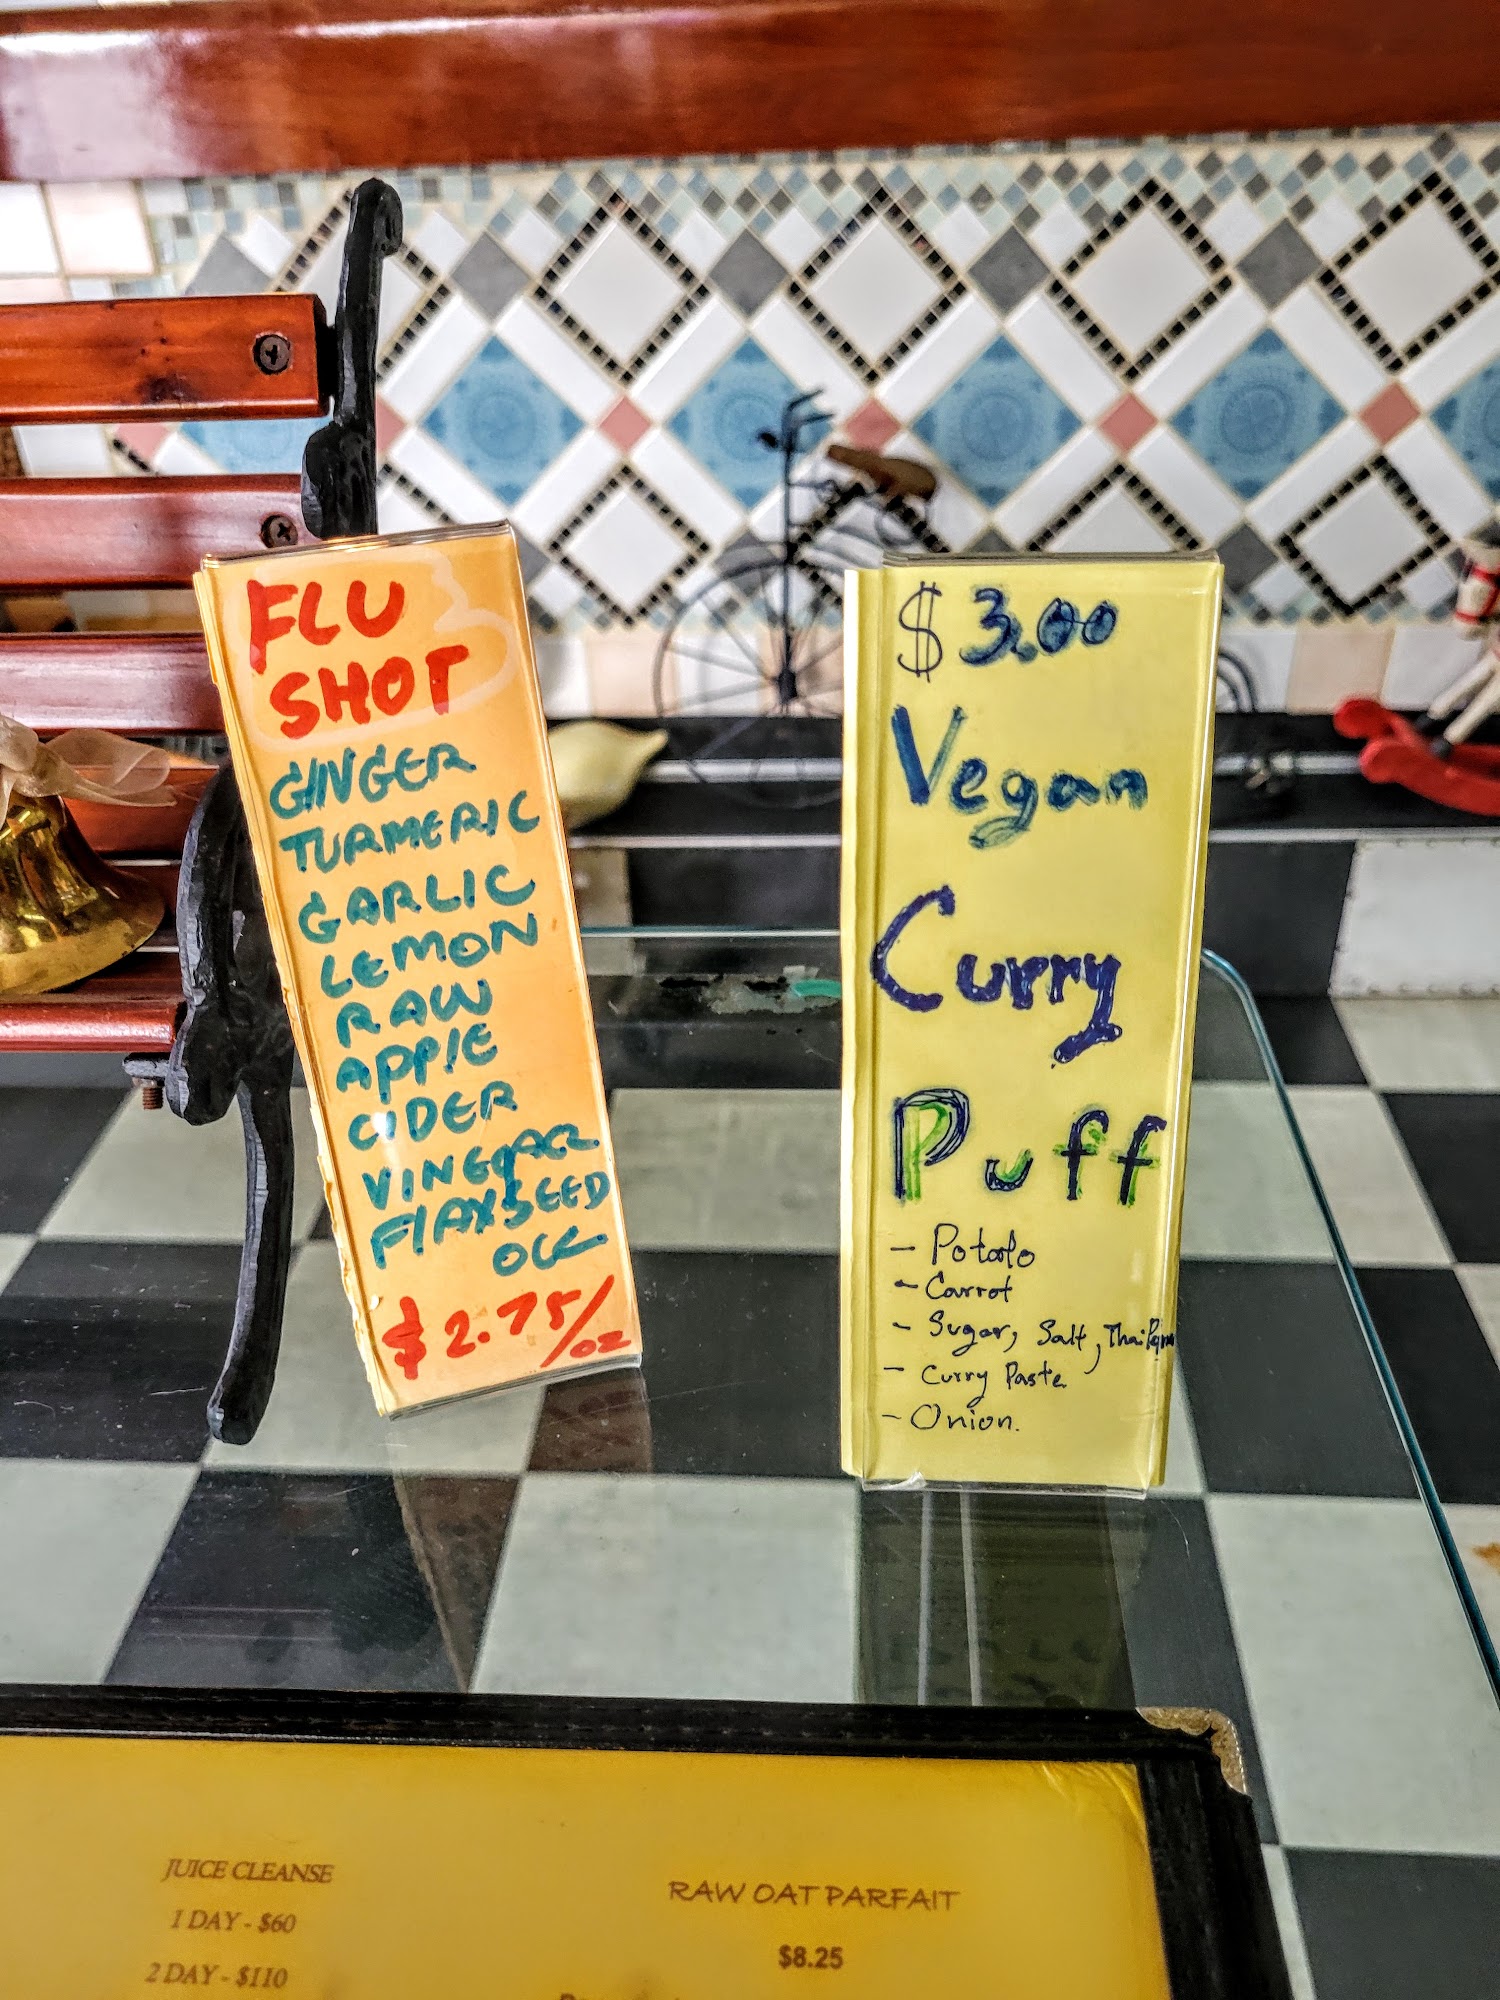 FLU
SHOT
GINGER
TURMERIC
GARLIC
LEMON
RAW
APPLE
CIDER
VINEGAR
FLAXSEED
$2.75/oz
$3.00
Vegan
Curry
Puff
- Potato
- Carrot
- Sugar, Salt, Thai
- Curry Paste
- Onion.
JUICE CLEANSE
1 DAY - $60
2 DAY - $110
RAW OAT PARFAIT
$8.25